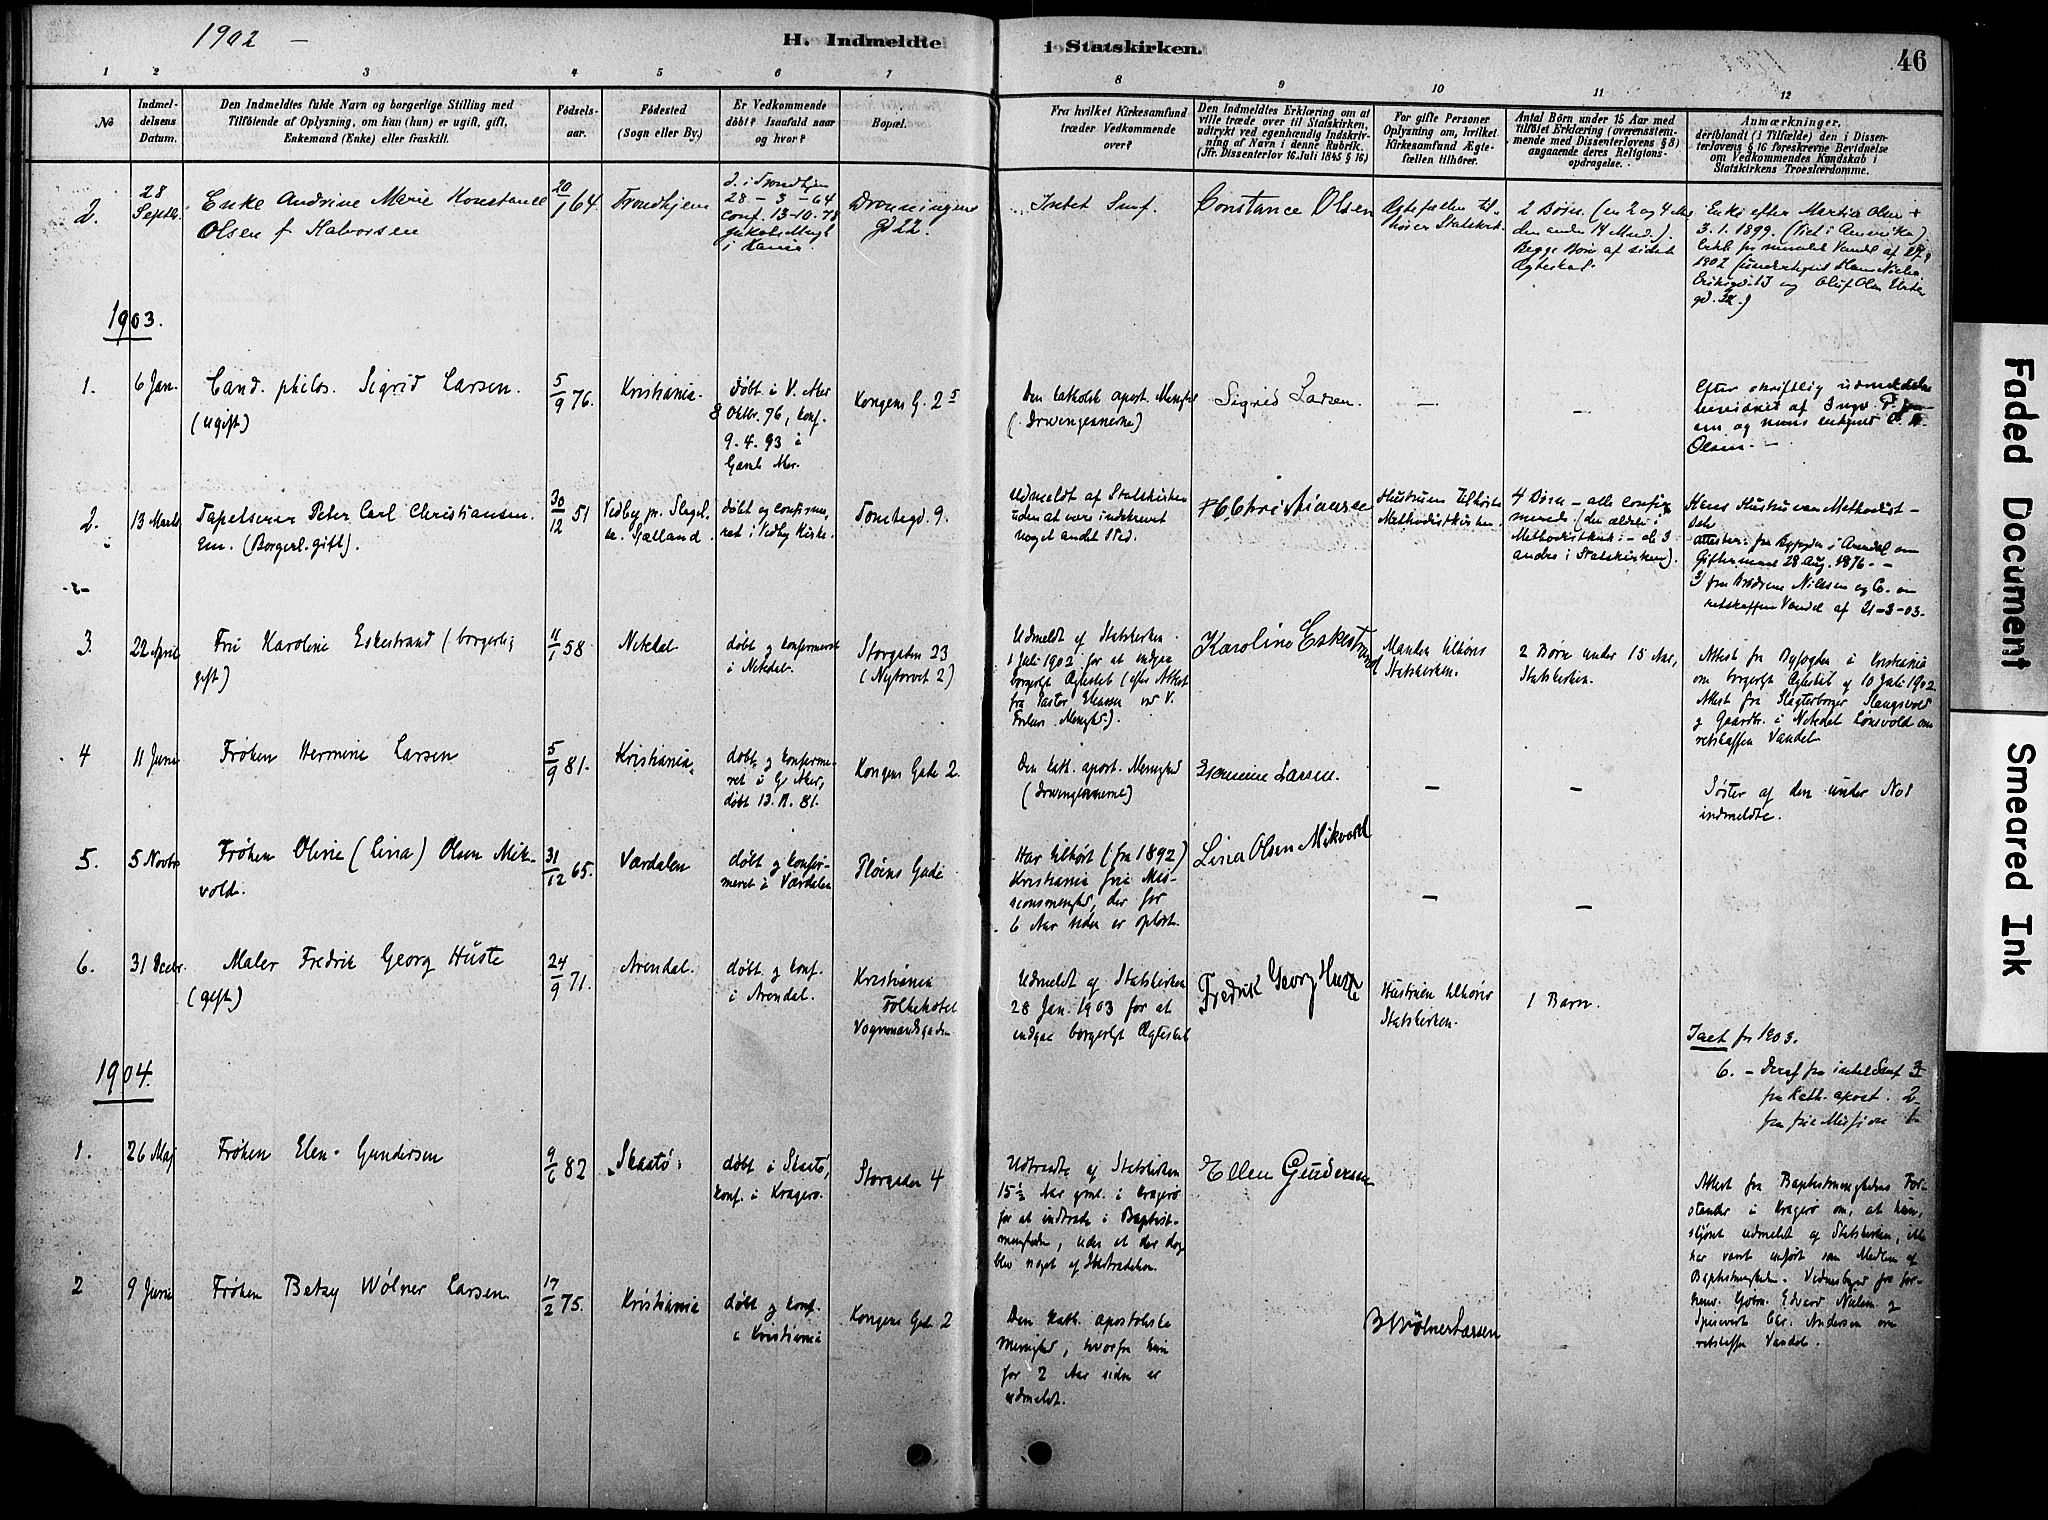 1902 —
H. Indmeldte i Statskirken.
46
1 2 3 4 5 6 7 8 9 10 11 12
No
Indmel-
delsens
Datum.
Den Indmeldtes fulde Navn og borgerlige Stilling med
Tilföiende af Oplysning, om han (hun) er ugift, gift,
Enkemand (Enke) eller fraskilt.
Födsels-
aar.
Födested
(Sogn eller By.)
Er Vedkommende
döbt? Isaafald naar
og hvor?
Bopæl.
Fra hvilket Kirkesamfund
træder Vedkommende
over?
Den Indmeldtes Erklæring om at
ville træde over til Statskirken,
udtrykt ved egenhændig Indskriv-
ning af Navn i denne Rubrik.
(Jfr. Dissenterlov 16 Juli 1845 § 16)
For gifte Personer
Oplysning om, hvilket
Kirkesamfund Ægte-
fællen tilhörer.
Antal Börn under 15 Aar med
tilföiet Erklæring (overensstem-
mende med Dissenterlovens § 8)
angaaende deres Religions-
opdragelse.
Anmærkninger,
deriblandt (i Tilfælde) den i Dissen-
terlovens § 16 foreskrevne Bevidnelse
om Vedkommendes Kundskab i
Statskirkens Troeslærdomme.
2.
28
Septb.
Enke Andrine Marie Konstance
Olsen f. Halvorsen
20/1 64
Trondhjem
d. i Trondhjem
28 – 3 – 64
conf. 13-10-78
i Kania
Dronningens
gd 22.
Intet Smf.
Constance Olsen
Ægtefællen til-
hører Statskirk.
2 Børn (en 2 og 4 Md
den anden 14 Mnd.).
Begge Børn af sidste
Ægteskab.
Enke efter Martin Olsen +
3.1.1899. (Viet i Amerika)
1902
og Oluf Olsen
1903.
1.
6 Jan.
Cand. philos. Sigrid Larsen.
(ugift)
5/9 76.
Kristiania.
døbt i V. Aker
8 Oktbr. 76, konf.
9. 4. 93 i
Gamle Aker.
Kongens G. 2 5
Den katholsk apost. Menighed
(Irvingianerne)
Sigrid Larsen.
—
—
Efter skriftlig udmeldelse
bevidnet af
Olsen. —
2.
13 Marts
Tapetserer Peter Carl Christiansen.
Em. (Borgerl. gift).
30/12 51
Vedby pr. Slagel-
se. Sjælland.
døbt og confirme-
ret i Vedby Kirke.
Tomtegd 9.
Udmeldt af Statskirken
uden at være indskrevet
noget andet Sted.
P C Christiansen
Hustruen tilhører
Methodistkirken.
4 Børn – alle confir-
merede (den ældste i
Methodistkirk. – de 3
andre i Statskirken).
Hans Hustru er Methodist –
attester: fra Byfogden i Arendal om
Giftermaal 28 Aug. 1876. –
3/ fra Brødrene Nilssen og Co. om
retskaffen Vandel af 21-3-03.
3.
22 April
Fru Karoline Eskestrand (borgerlig
gift)
11/1 58
Nitedal
døbt og konfirmeret
i Nitedal.
Storgaden 23
(Nytorvet 2)
Udmeldt af Statskirken
1 Juli 1902 for at indgaa
borgerligt Ægteskab (efter Attest
fra Pastor Klaveness ved V.
Frelsers Menighed).
Karoline Eskestrand
Manden tilhører
Statskirken.
2 Børn under 15 Aar,
Statskirken.
Attest fra Byfogden i Kristiania
om borgerligt Ægteskab af 10 Juli 1902
Attest fra Slagterborger Slangsvold
og Gaardbr. i Nitedal Lønsvold om
retskaffen Vandel
4
11 Juni
Frøken Hermine Larsen
5/9 81.
Kristiania.
døbt og konfirme-
ret i G. Aker,
døbt 13. 11. 81.
Kongens Gade 2.
Den kath. apost. Menighed
(Irvingianerne)
Hermine Larsen.
—
—
Søster af den under No 1
indmeldte.
5.
5 Novbr
Frøken Oline (Lina) Olsen Mik-
vold.
31/12 65.
Værdalen
døbt og konfir-
meret i Værdalen
Pløens Gade
Har tilhørt (fra 1892)
Kristiania frie Mis-
sionsmenighed, der for
6 Aar siden er opløst.
Lina Olsen Mikvold
—
—
6.
31 Decbr.
Maler Fredrik Georg Huste
(gift)
24/9 71.
Arendal.
døbt og konf.
i Arendal.
Kristiania
Folkehotel
Vognmandsgaden
Udmeldt af Statskirken
28 Jan. 1903 for at
indgaa borgerligt Ægteskab
Fredrik Georg Huste
Hustruen tilhører
Statskirken.
1 Barn.
Ialt for 1903.
6. – Deraf fra intet Smf 3
fra kath. apost. 2
fra frie Mission 1.
1904.
1.
26 Maj
Frøken Elen Gundersen
9/6 82
Skaatø
døbt i Skaatø,
konf. i Kragerø.
Storgaden 4
Udtraadte af Statskirken
15 1/2 Aar gml. i Kragerø
for at indtræde i Baptist-
menigheden, uden at der dog
blev noget af Indtrædelsen.
Ellen Gundersen
Attest fra Baptistmenighedens For-
stander i Kragerø om, at hun,
skjønt udmeldt af Statskirken, ikke
har været anført som Medlem af
Baptistmenigheden. Vidnesbyrd fra for-
henv. Edvard Nielsen og
Chr. Andersen om
retskaffen Vandel.
2
9 Juni
Frøken Betzy Wølner Larsen
17/2 75.
Kristiania
døbt og konf.
i Kristiania
Kongens Gade 2
Den kath. apostolske
Menighed, hvorfra hun
for 2 Aar siden er
udmeldt.
B Wølner Larsen
Faded Document
Smeared Ink